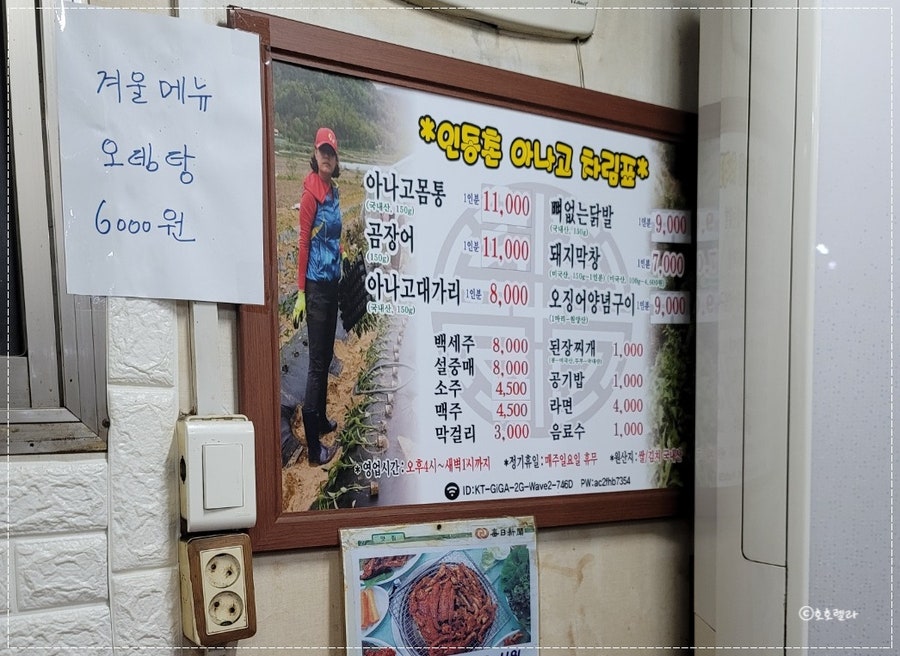 겨울 메뉴
오뎅탕
6000원
*인동촌 아나고 차림표*
아나고몸통 1인분 11,000
(국내산, 150g)
곰장어 1인분 11,000
(150g)
아나고대가리 1인분 8,000
(국내산, 150g)
뼈없는닭발 1인분 9,000
돼지막창 1인분 7,000
오징어양념구이 1인분 9,000
백세주 8,000
설중매 8,000
소주 4,500
맥주 4,500
막걸리 3,000
된장찌개 1,000
공기밥 1,000
라면 4,000
음료수 1,000
*영업시간:오후4시~새벽1시까지 *정기휴일:매주일요일 휴무 *원산지:쌀/김치 국내산
ID:KT-GiGA-2G-Wave2-746D PW:ac2fhb7354
每日新聞
ⓒ호호렐라